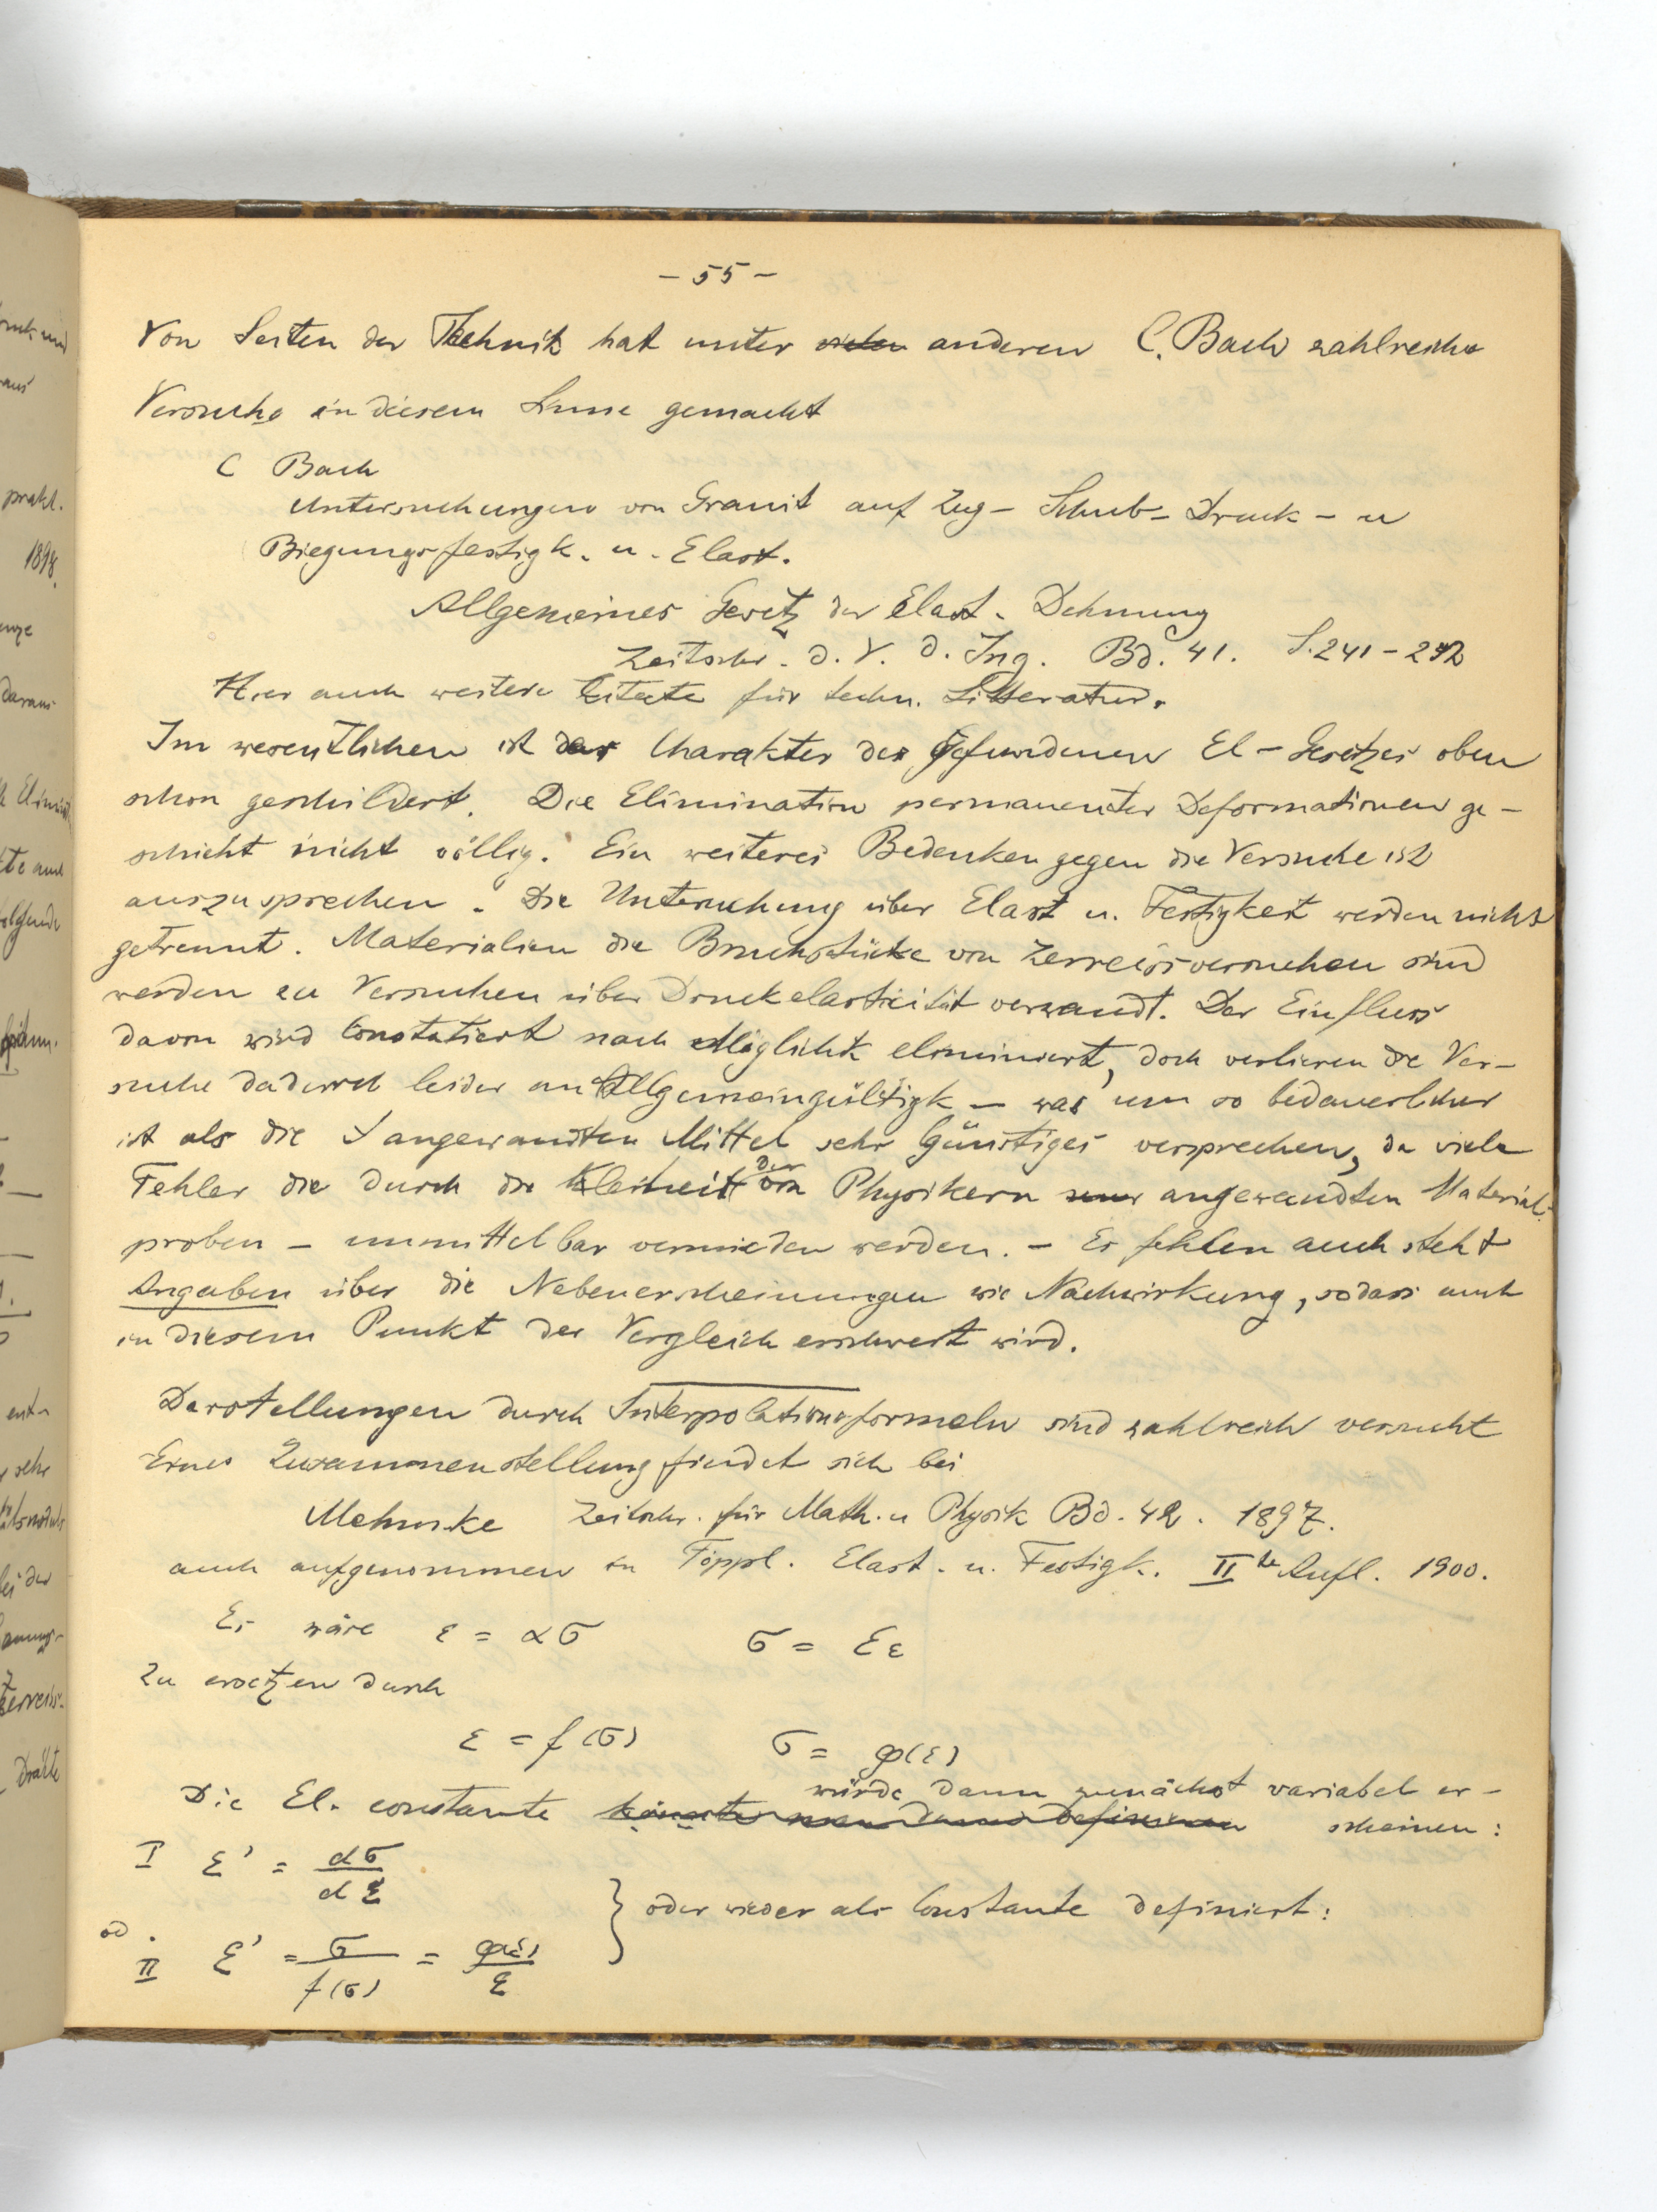 - 55 -
Von Seiten der Technik hat unter anderen C. Bach zahlreiche
Versuche in diesem Sinne gemacht
C Bach
Untersuchungen von Granit auf Zug- Schub- Druck- u
Biegungsfestigk. u. Elast.
Allgemeines Gesetz der Elast. Dehnung
Zeitschr. d. V. d. Ing. Bd. 41. S. 241-252
Hier auch weitere Citate für techn. Litteratur.
Im wesentlichen ist der Charakter des gefundenen El-Gesetzes oben
schon geschildert. Die Elimination permanenter Deformationen ge-
schieht nicht völlig. Ein weiteres Bedenken gegen die Versuche ist
auszusprechen. Die Untersuchung über Elast u. Festigkeit werden nicht
getrennt. Materialien die Bruchstücke von Zerreissversuchen sind
werden zu Versuchen über Druckelasticität verwandt. Der Einfluss
davon wird constatiert nach Möglichk eliminiert, doch verlieren die Ver-
suche dadurch leider an Allgemeingültigk - was um so bedauerlicher
ist als die angewandten Mittel sehr Günstiges versprechen, da viele
Fehler die durch die Kleinheit der von Physikern angewandten Material-
proben - unmittelbar vermieden werden. - Es fehlen auch
Angaben über die Nebenerscheinungen wie Nachwirkung, sodass auch
in diesem Punkt der Vergleich erschwert wird.
Darstellungen durch Interpolationsformeln sind zahlreich versucht
Eine Zusammenstellung findet sich bei
Mehmke Zeitschr. für Math. u Physik Bd. 42. 1897.
auch aufgenommen in Föppl. Elast. u. Festigk. II te Aufl. 1900.
Es wäre ε = ασ σ = Eε
Zu ersetzen durch
ε = f(σ) σ = φ(ε)
würde dann zunächst variabel er-
Die El. constante scheinen:
I E' = dσ/dε
od. } oder wieder als Constante definiert:
II E' = σ/f(σ) = φ(ε)/ε